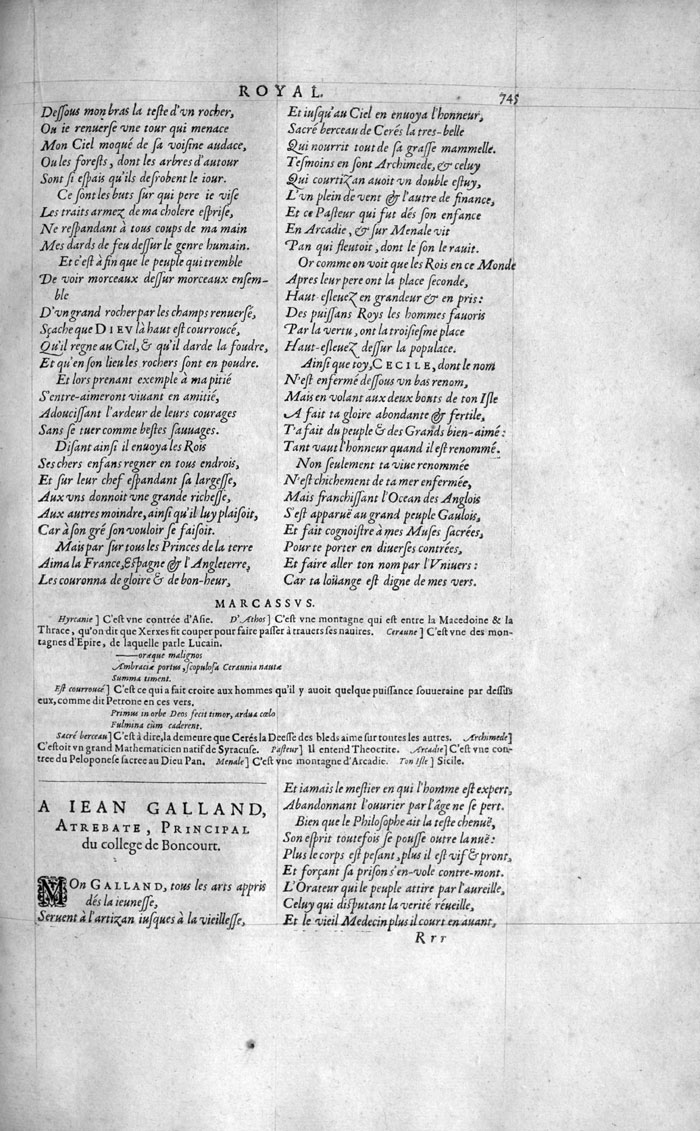 ROYAL.
745
Dessous mon bras la teste d'vn rocher,
Ou ie renuerse vne tour qui menace
Mon Ciel moqué de sa voisine audace,
Ou les forests, dont les arbres d'autour
Sont si espais qu'ils desrobent le iour.
Ce sont les buts sur qui pere ie vise
Les traits armez de ma cholere esprise,
Ne respandant à tous coups de ma main
Mes dards de feu dessur le genre humain.
Et c'est à fin que le peuple qui tremble
De voir morceaux dessur morceaux ensem-
ble
D'vn grand rocher par les champs renuersé,
Sçache que DIEV là haut est courroucé,
Qu'il regne au Ciel, & qu'il darde la foudre,
Et qu'en son lieu les rochers sont en poudre.
Et lors prenant exemple à ma pitié
S'entre-aimeront viuant en amitié,
Adoucissant l'ardeur de leurs courages
Sans se tuer comme bestes sauuages.
Disant ainsi il enuoya les Rois
Ses chers enfans regner en tous endrois,
Et sur leur chef espandant sa largesse,
Aux vns donnoit vne grande richesse,
Aux autres moindre, ainsi qu'il luy plaisoit,
Car à son gré son vouloir se faisoit.
Mais par sur tous les Princes de la terre
Aima la France, Espagne & l'Angleterre,
Les couronna de gloire & de bon-heur,
Et iusqu'au Ciel en enuoya l'honneur,
Sacré berceau de Cerés la tres-belle
Qui nourrit tout de sa grasse mammelle.
Tesmoins en sont Archimede, & celuy
Qui courtizan auoit vn double estuy,
L'vn plein de vent & l'autre de finance,
Et ce Pasteur qui fut dés son enfance
En Arcadie, & sur Menale vit
Pan qui fleutoit, dont le son le rauit.
Or comme on voit que les Rois en ce Monde
Apres leur pere ont la place seconde,
Haut-esleuez en grandeur & en pris:
Des puissans Roys les hommes fauoris
Par la vertu, ont la troisiesme place
Haut-esleuez dessur la populace.
Ainsi que toy, CECILE, dont le nom
N'est enfermé dessous vn bas renom,
Mais en volant aux deux bouts de ton Isle
A fait ta gloire abondante & fertile,
T'a fait du peuple & des Grands bien-aimé:
Tant vaut l'honneur quand il est renommé.
Non seulement ta viue renommée
N'est chichement de ta mer enfermée,
Mais franchissant l'Ocean des Anglois
S'est apparuë au grand peuple Gaulois,
Et fait cognoistre à mes Muses sacrées,
Pour te porter en diuerses contrées,
Et faire aller ton nom par l'Vniuers:
Car ta loüange est digne de mes vers.
MARCASSVS.
Hyrcanie] C'est vne contrée d'Asie. D'Athos] C'est vne montagne qui est entre la Macedoine & la
Thrace, qu'on dit que Xerxes fit couper pour faire passer à trauers ses nauires. Ceraune] C'est vne des mon-
tagnes d'Epire, de laquelle parle Lucain.
——oræque malignos
Ambraciæ portus, scopulosa Ceraunia nautæ
Summa timent.
Est courroucé] C'est ce qui a fait croire aux hommes qu'il y auoit quelque puissance souueraine par dessus
eux, comme dit Petrone en ces vers.
Primus in orbe Deos fecit timor, ardua cœlo
Fulmina cùm caderent.
Sacré berceau] C'est à dire, la demeure que Cerés la Deesse des bleds aime sur toutes les autres. Archimede]
C'estoit vn grand Mathematicien natif de Syracuse. Pasteur] Il entend Theocrite. Arcadie] C'est vne con-
tree du Peloponese sacree au Dieu Pan. Menale] C'est vne montagne d'Arcadie. Ton Isle] Sicile.
A IEAN GALLAND,
ATREBATE, PRINCIPAL
du college de Boncourt.
MOn GALLAND, tous les arts appris
dés la ieunesse,
Seruent à l'artizan iusques à la vieillesse,
Et iamais le mestier en qui l'homme est expert,
Abandonnant l'ouurier par l'âge ne se pert.
Bien que le Philosophe ait la teste chenuë,
Son esprit toutefois se pousse outre la nuë:
Plus le corps est pesant, plus il est vif & pront,
Et forçant sa prison s'en-vole contre-mont.
L'Orateur qui le peuple attire par l'aureille,
Celuy qui disputant la verité réueille,
Et le vieil Medecin plus il court en auant,
Rrr